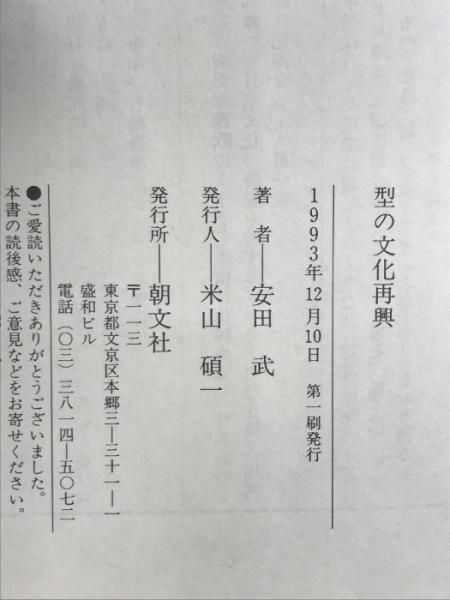 型の文化再興
1993年12月10日 第一刷発行
著 者――安田 武
発行人――米山 碩一
発行所――朝文社
〒一一三
東京都文京区本郷三―三十一―一
盛和ビル
電話(〇三)三八一四―五〇七二
●ご愛読いただきありがとうございました。
本書の読後感、ご意見などをお寄せください。